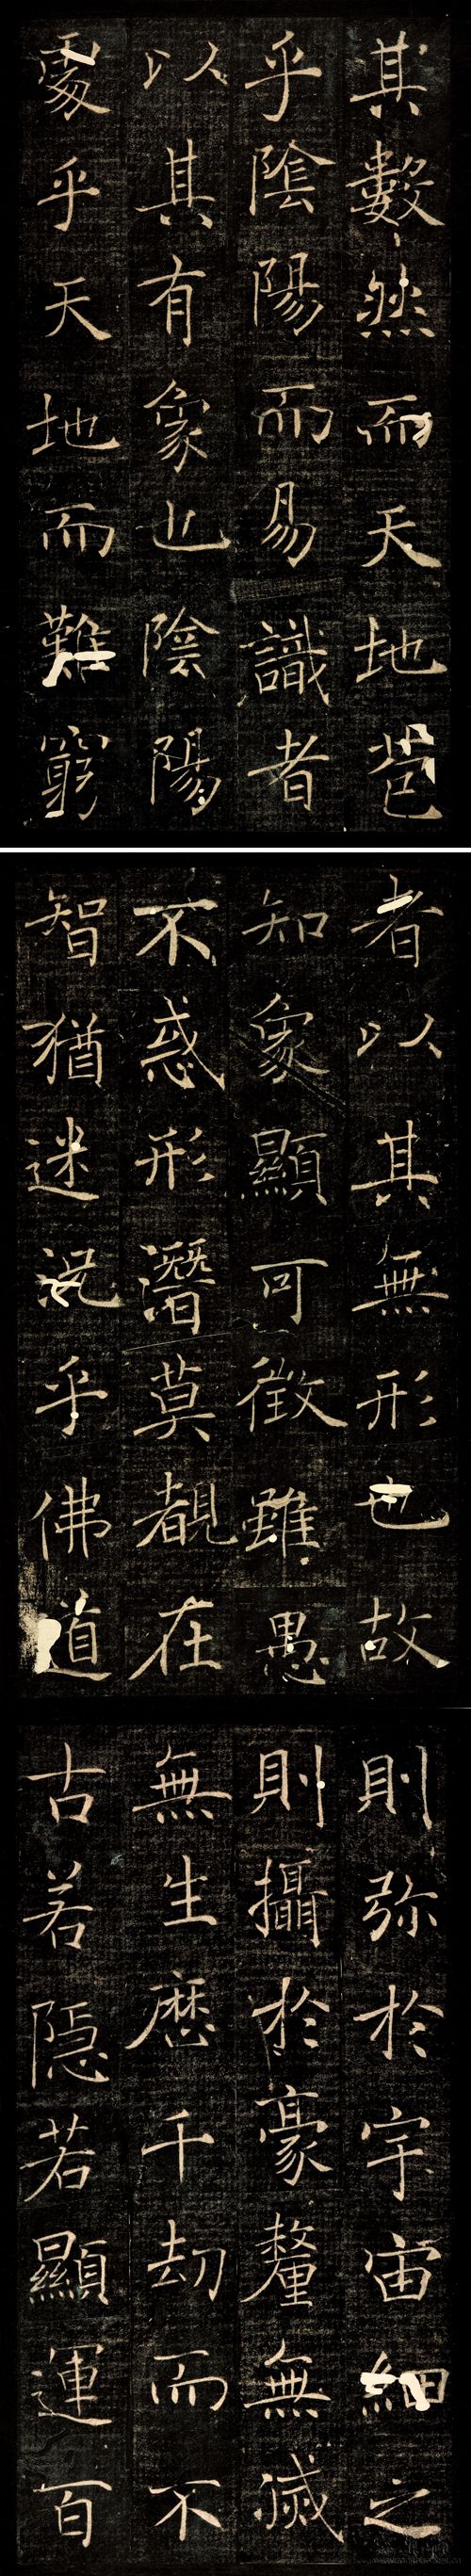 其數然而天地苞
乎陰陽而易識者
以其有象也陰陽
處乎天地而難窮
者以其無形也故
知象顯可徵雖愚
不惑形潛莫覩在
智猶迷況乎佛道
則弥於宇宙細之
則攝於豪釐無滅
無生歷千劫而不
古若隱若顯運百